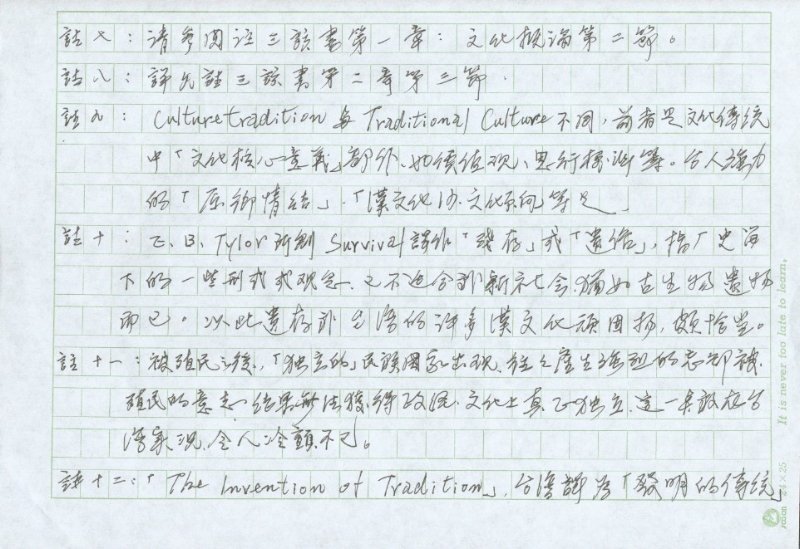 註七:请参閱註三該書第一章:文化概論第二節。
註八:詳見註三該書第二章第三節.
註九:Culture tradition 與 Traditional Culture 不同,前者是文化傳統
中「文化核心意義」部分、如價值观、思行標準等。台人強力
的「原鄉情結」、「漢文化的文化傾向等是」
註十:E. B. Tylor 所創 Survival 譯作「殘存」或「遺俗」,指「史
下的一些形式或观念、已不适合新社会、猶如古生物遺物
而已。以此遺存 台湾的許多漢文化頑固物,頗恰当。
註十一:被殖民之後,「独立的」民族国家出現、往々產生強烈的忘卻被
殖民的意志、結果無法獲得政治、文化上真正独立、這一 台
湾 況、令人冷顫不已。
註十二:「The Invention of Tradition」,台灣譯為「發明的傳統」
It is never too late to learn.
24×25